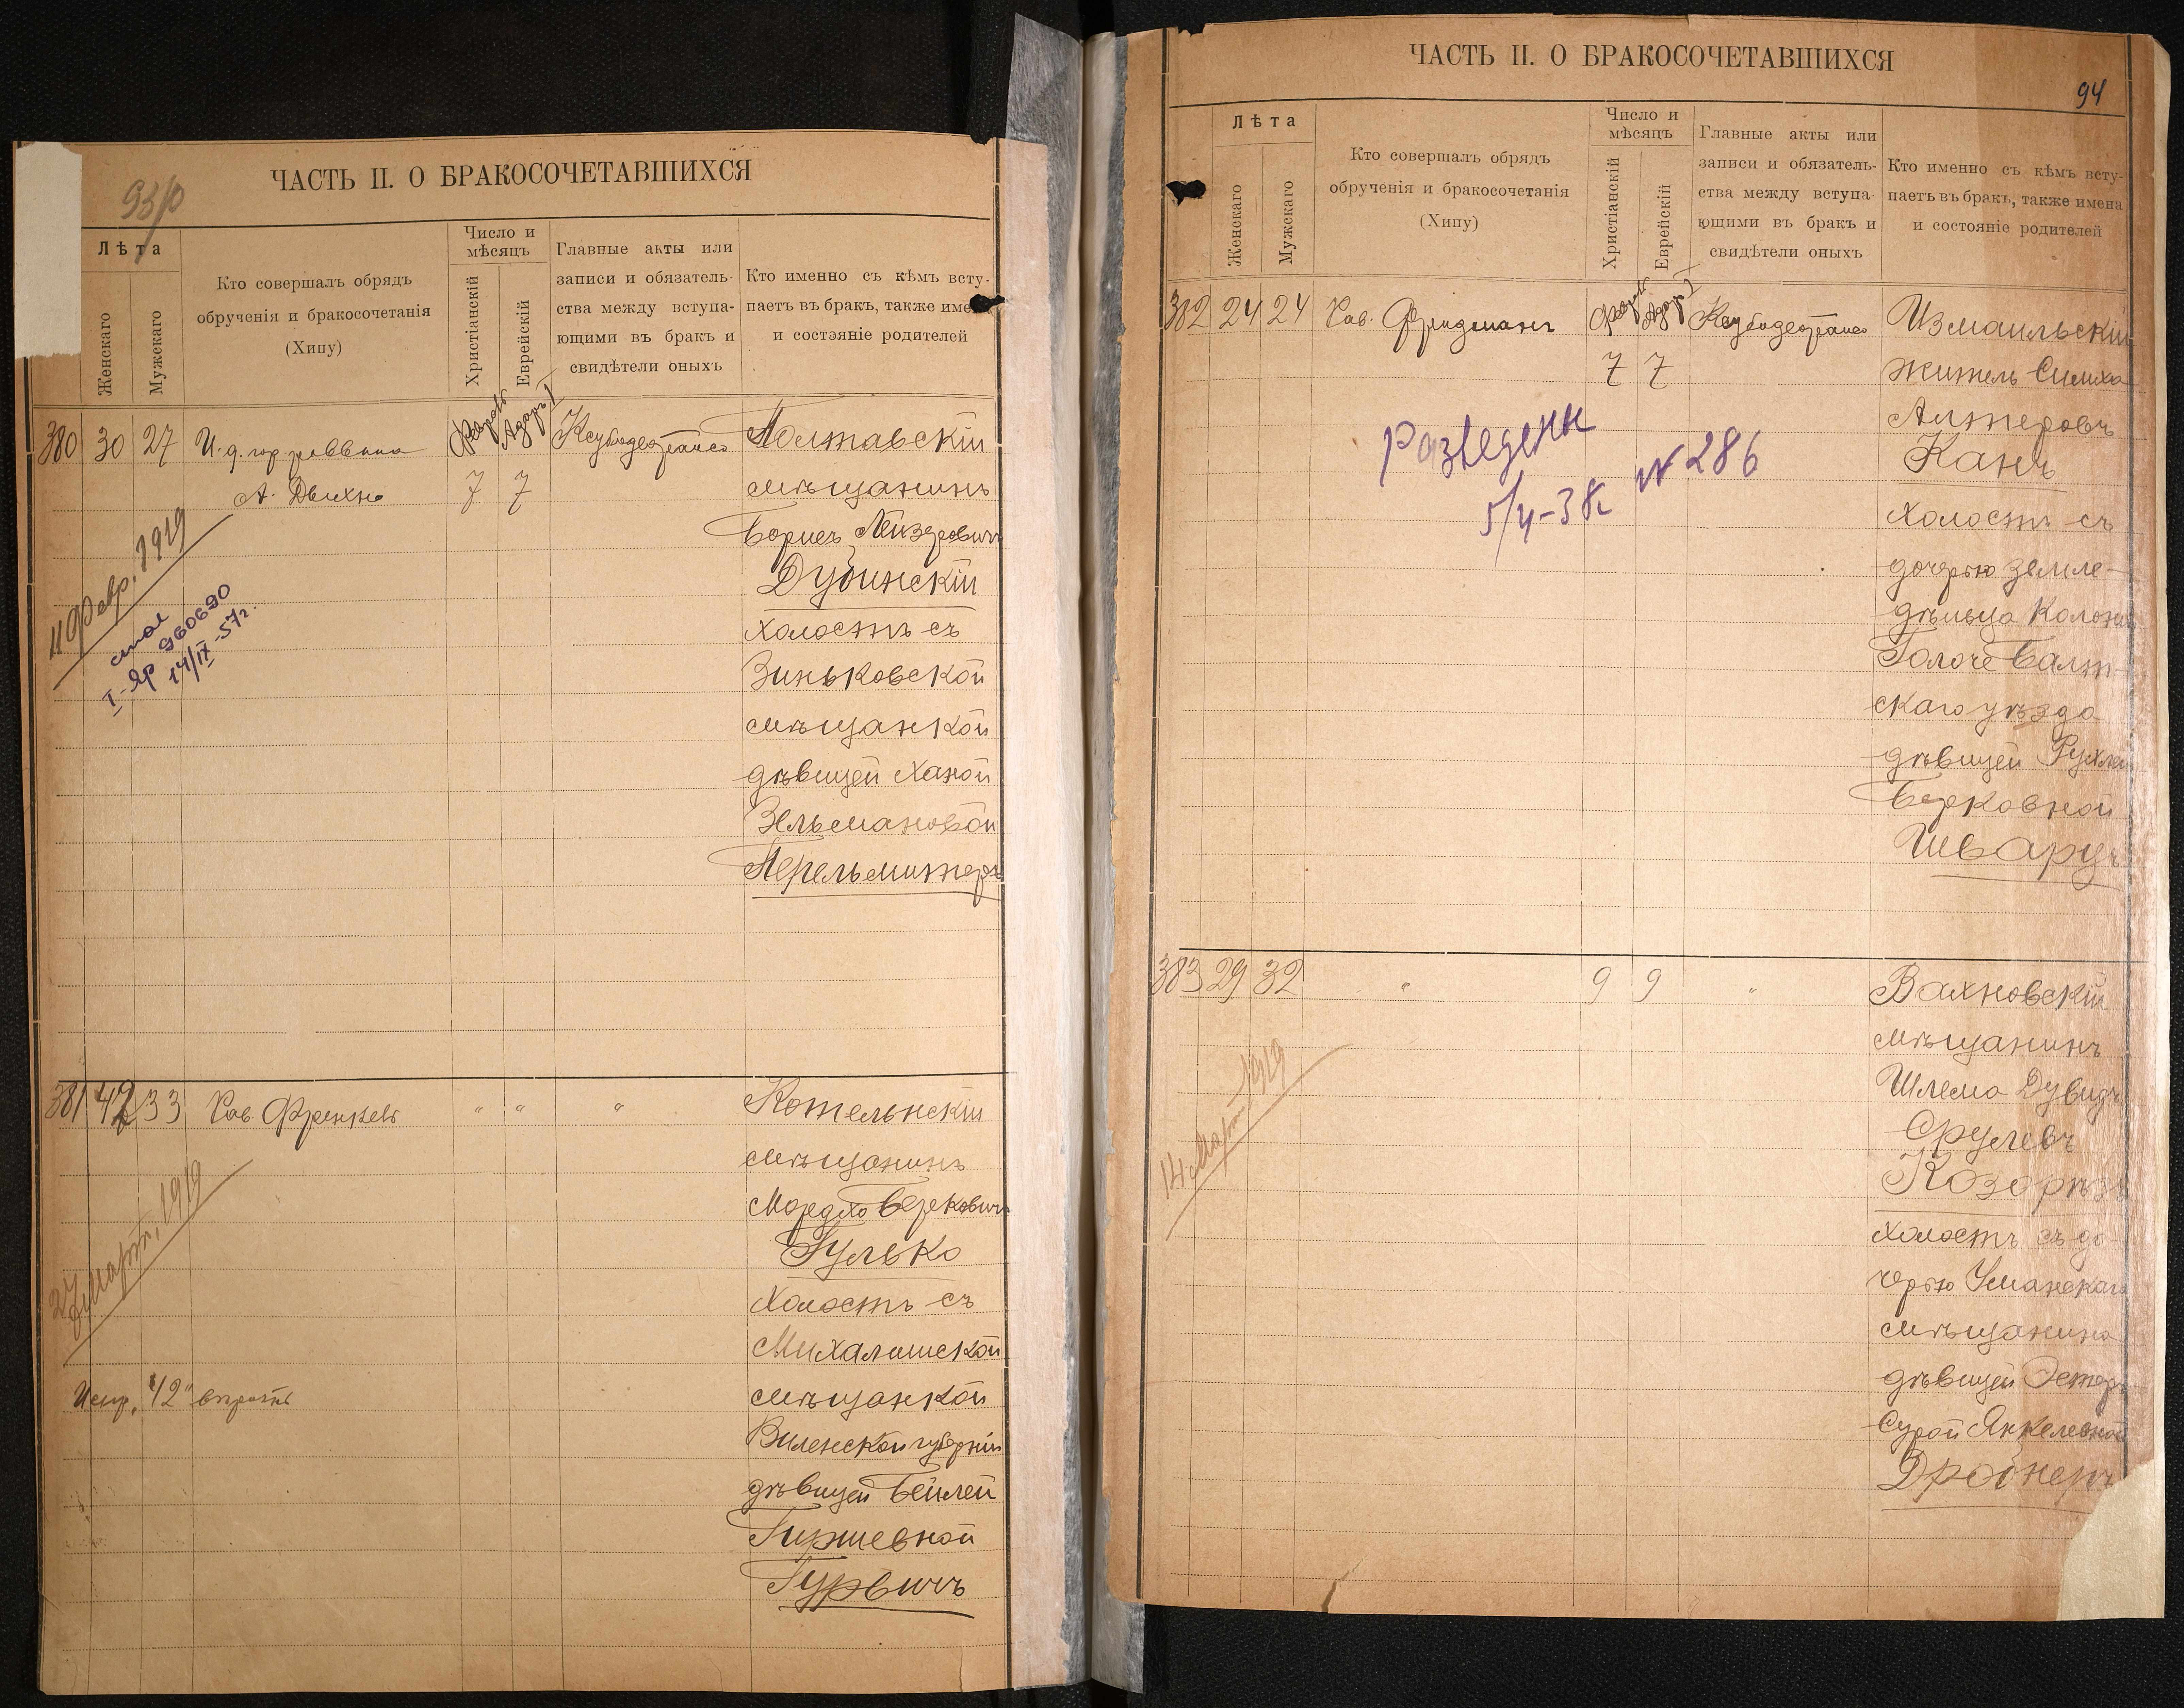 ЧАСТЬ II. О БРАКОСОЧЕТАВШИХСЯ
Лѣта
Женскаго
Мужскаго
Кто совершалъ обрядъ
обрученія и бракосочетанія
(Хипу)
Число и
мѣсяцъ
Христіанскій
Еврейскій
Главные акты или
записи и обязатель-
ства между вступа-
ющими въ бракъ и
свидѣтели оныхъ
Кто именно съ кѣмъ всту-
паетъ въ бракъ, также име
и состояніе родителей
380 30 27 И. д. гор. раввина
А. Двихно
7 7
Полтавскій
мѣщанинъ
Борисъ Лейзеровичъ
Дубинскій
холостъ съ
Зиньковской
мѣщанкой
дѣвицей Ханой
Зельмановой
Перельмитеръ
11 Февр. 1919
I-Яр 960690
14/IX-57г.
381 42 33 Рав. Френкель " " "
Котельнскій
мѣщанинъ
Мордко Берковичъ
Гулько
холостъ съ
Михалишской
мѣщанкой
Виленской губерніи
дѣвицей Бейлей
Гиршевной
Гурвичъ
Марта, 1919
Испр. "42" вѣрить
ЧАСТЬ II. О БРАКОСОЧЕТАВШИХСЯ
94
Лѣта
Женскаго
Мужскаго
Кто совершалъ обрядъ
обрученія и бракосочетанія
(Хипу)
Число и
мѣсяцъ
Христіанскій
Еврейскій
Главные акты или
записи и обязатель-
ства между вступа-
ющими въ бракъ и
свидѣтели оныхъ
Кто именно съ кѣмъ всту-
паетъ въ бракъ, также имена
и состояніе родителей
382 24 24 Рав. Фридманъ
7 7
Измаильскій
житель Симха
Алтеровъ
Канъ
холостъ съ
дочерью земле-
дѣльца Колоніи
Голоче Балт-
скаго уѣзда
дѣвицей Рухлей
Берковной
Шварцъ
Разведены
5/4-38г. № 286
383 29 32 " 9 9 "
Вахновскій
мѣщанинъ
Шлема Дувидъ
Срулевъ
Козорѣзъ
холостъ съ до-
черью Уманскаго
мѣщанина
дѣвицей Эстеръ
Сурой Янкелевной
Дройнеръ
14 Марта 1919